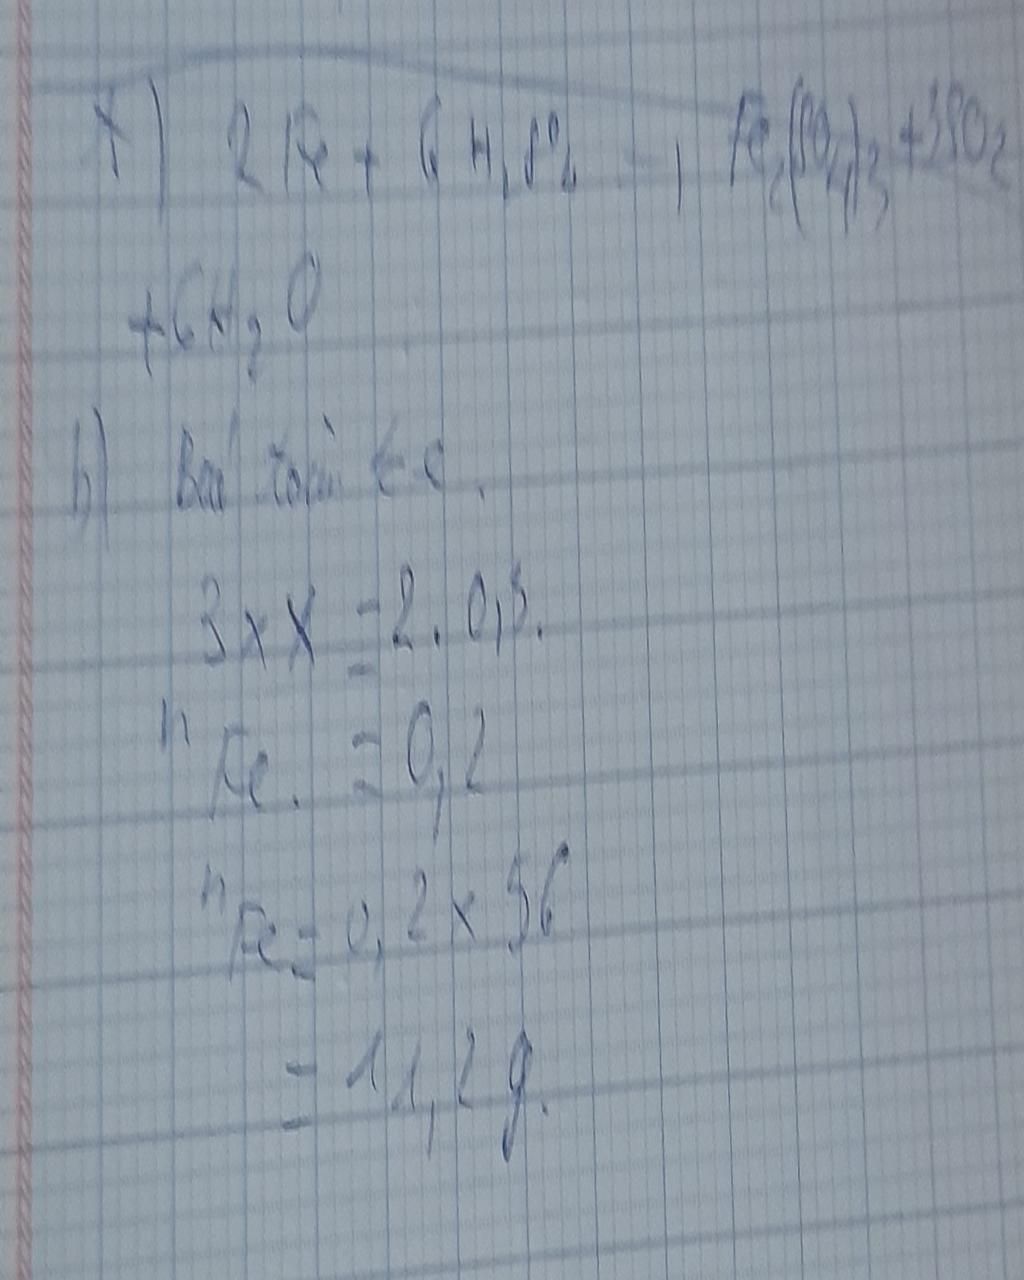 a) 2Fe + 6H₂SO₄ → Fe₂(SO₄)₃ + 3SO₂
+ 6H₂O
b) Bảo toàn e.
3 x X = 2. 0,3.
n Fe. = 0,2
n Fe = 0,2 x 56
= 11,2 g.